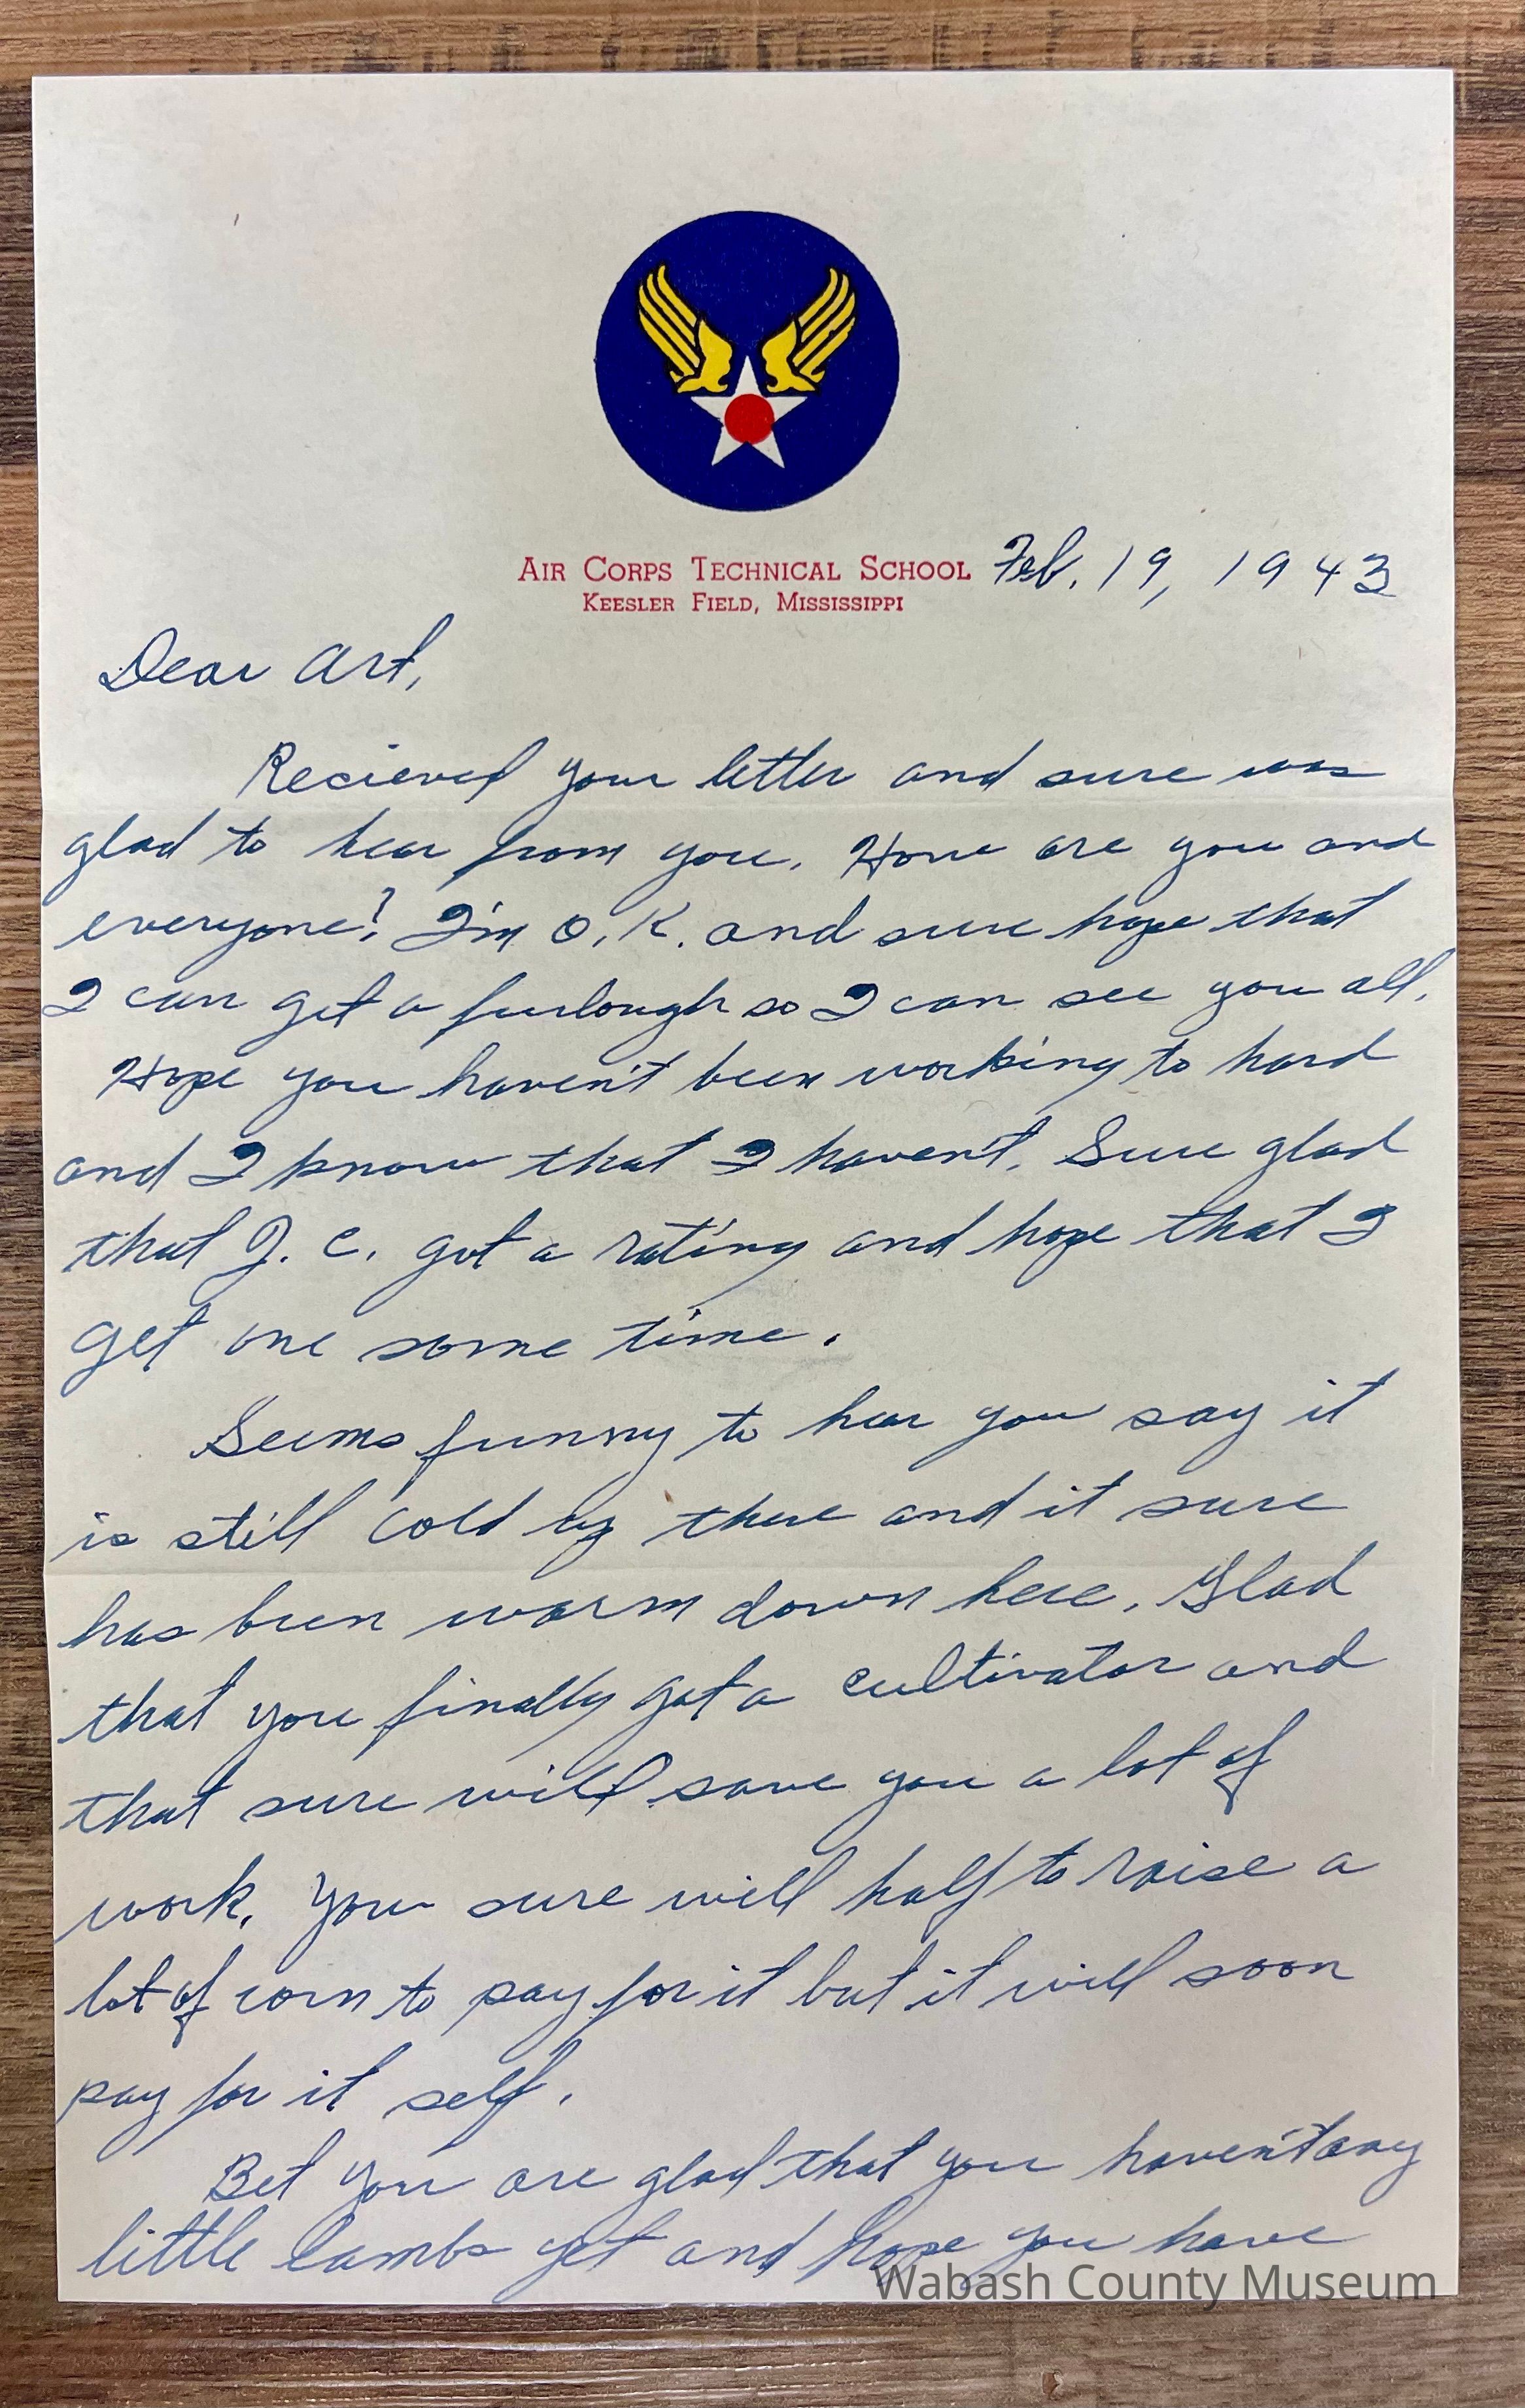 AIR CORPS TECHNICAL SCHOOL Feb. 19, 1943
KEESLER FIELD, MISSISSIPPI
Dear Art,
Recieved your letter and sure was
glad to hear from you. How are you and
everyone? I'm O.K. and sure hope that
I can get a furlough so I can see you all.
Hope you haven't been working to hard
and I know that I haven't. Sure glad
that J. C. got a rating and hope that I
get one some time.
Seems funny to hear you say it
is still cold up there and it sure
has been warm down here. Glad
that you finally got a cultivator and
that sure will save you a lot of
work. You sure will half to raise a
lot of corn to pay for it but it will soon
pay for it self.
Bet you are glad that you haven't any
little lambs yet and hope you have
Wabash County Museum